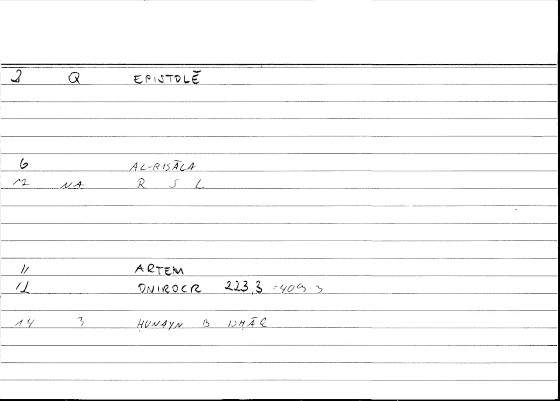 2 Q EPISTOLĒ
6 AL-RISĀLA
12 NA R S L
11 ARTEM
12 ONIROCR 223.3 -409.3
14 3 HUNAYN B ISHĀQ